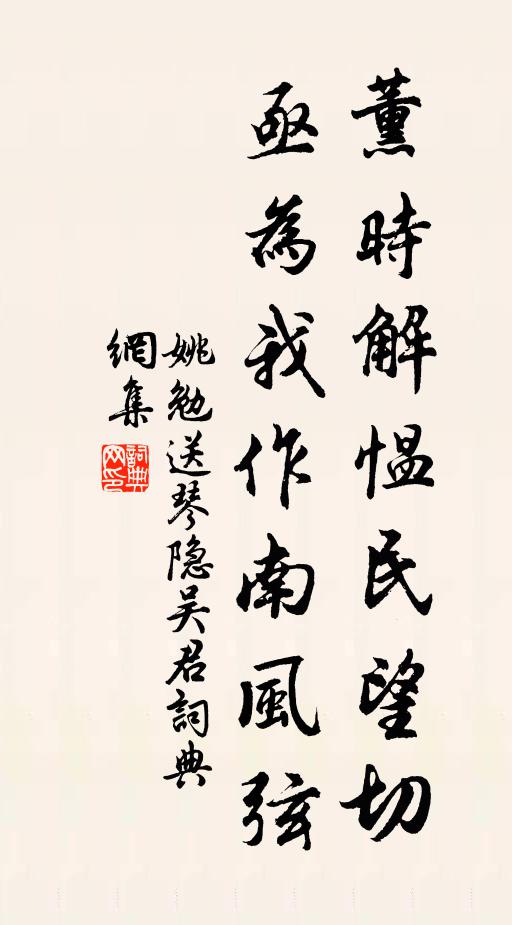 薰時解愠民望切
亟為我作南風弦
姚勉送琴隐吴君詞典
網集
詞典
网印